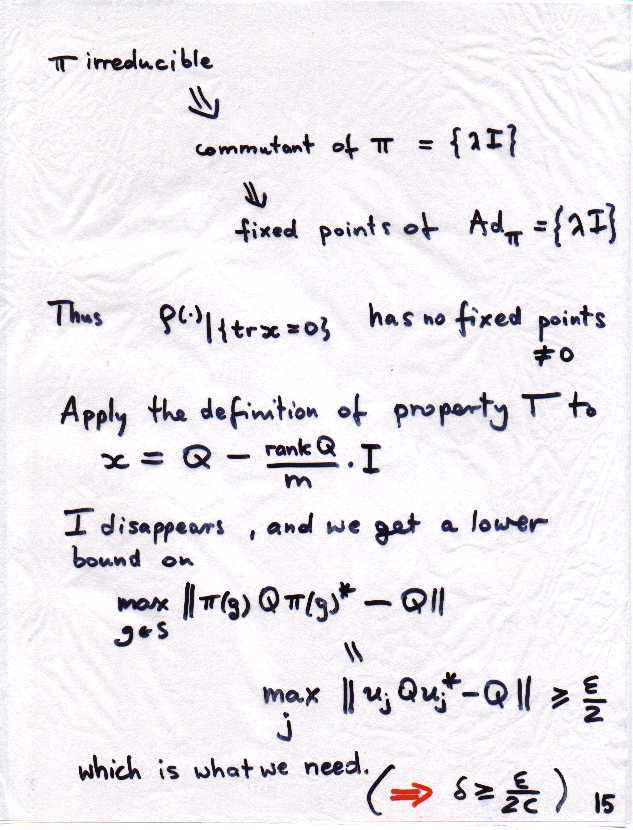 π irreducible
⇓
commutant of π = {λI}
⇓
fixed points of Ad_π = {λI}
Thus ρ(·)|{tr x = 0} has no fixed points
≠ 0
Apply the definition of property T to
x = Q − rank Q / m · I
I disappears, and we get a lower
bound on
max ‖π(g) Q π(g)* − Q‖
g∈S
=
max ‖u_j Q u_j* − Q‖ ≥ ε/2
j
which is what we need. (⇒ δ ≥ ε/2C) 15